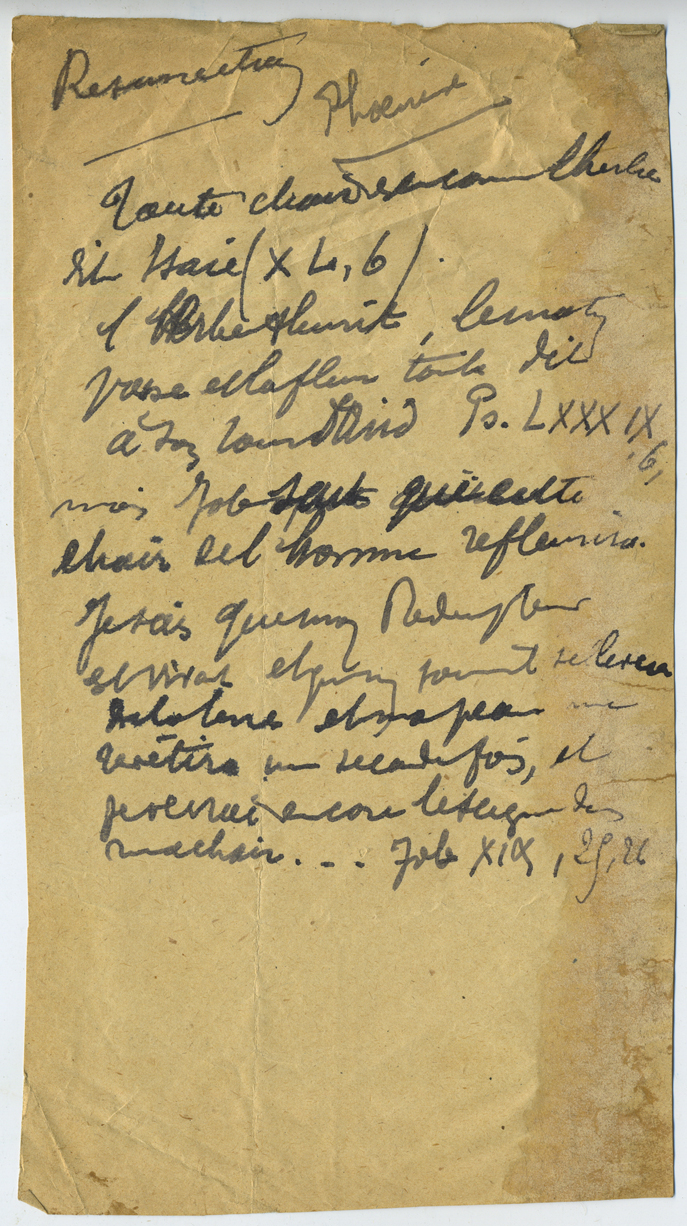 Resurrection
Phoenix
Toute chair est comme l'herbe
dit Isaïe (XL, 6).
l'Herbe fleurit, le matin
passe et la fleur tombe dit
à son tour David Ps. LXXXIX
,6,
mais Job sait que cette
chair de l'homme refleurira.
Je sais que mon Redempteur
est vivant et qu'un jour il se levera
de la terre et ma peau me
revêtira une seconde fois, et
je verrai encore le seigneur dans
ma chair... Job XIX, 25, 26